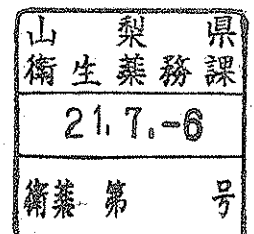 山梨県
衛生薬務課
21.7.-6
衛薬第 号